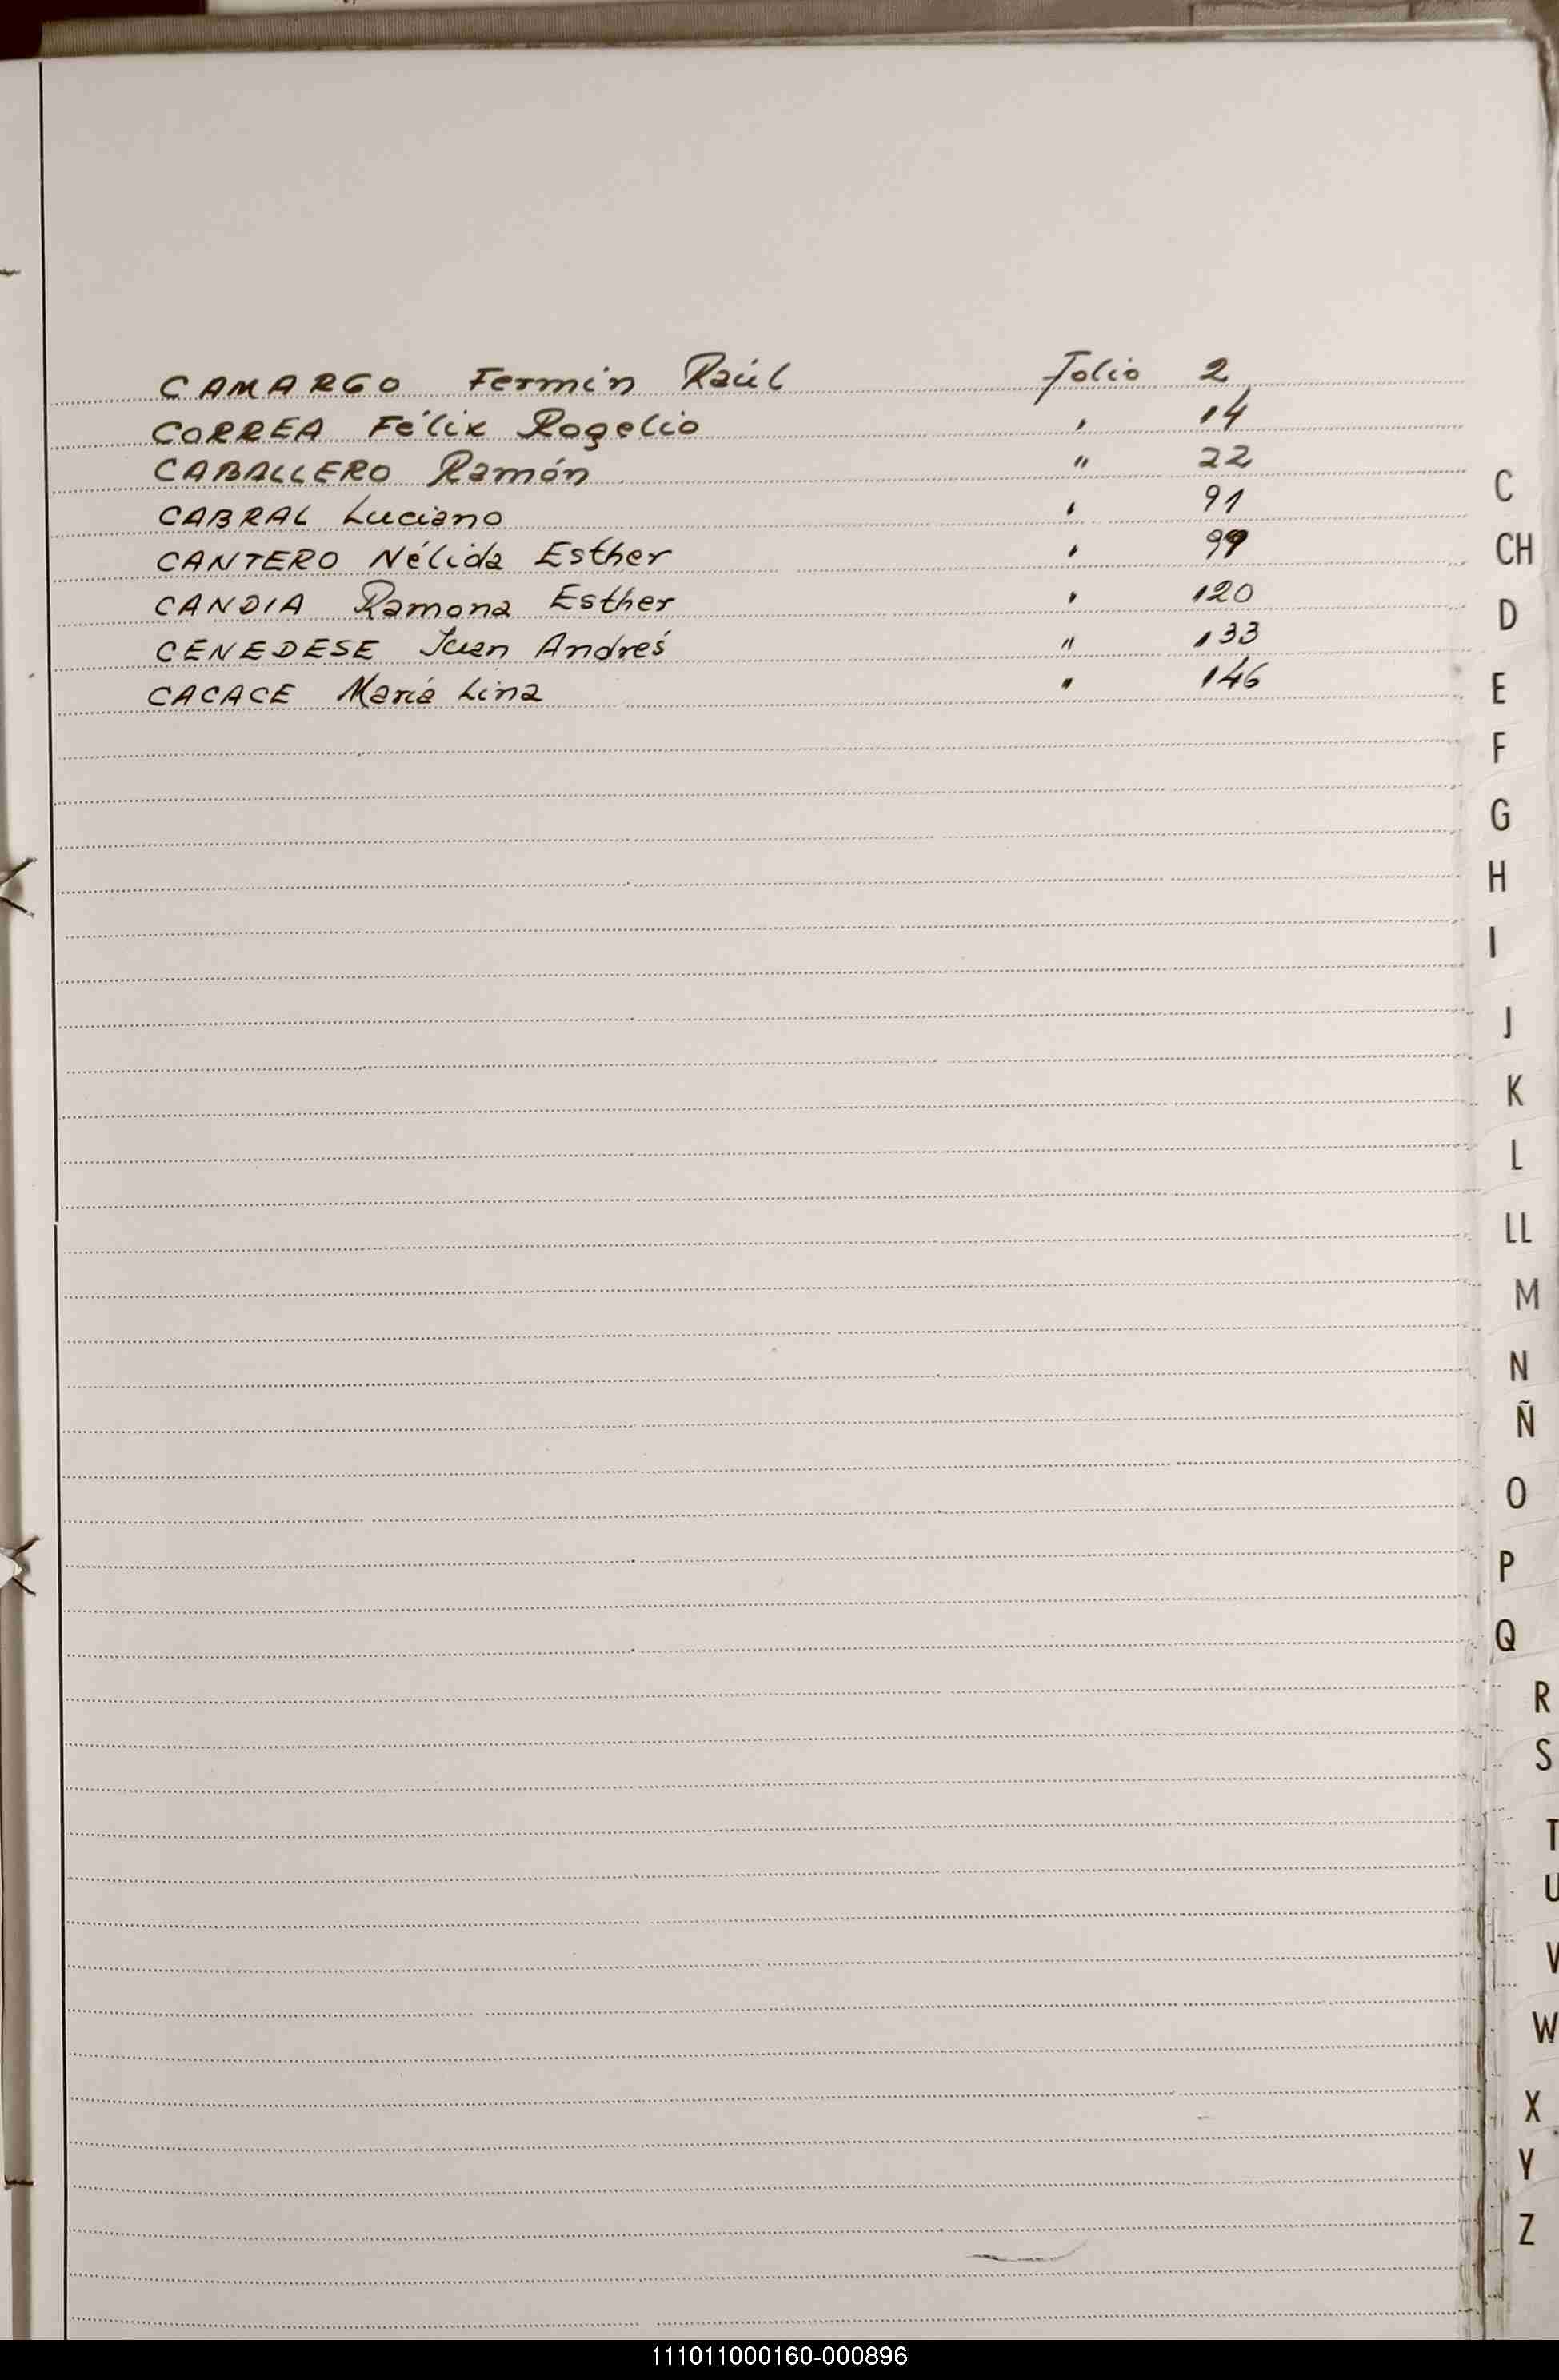 CAMARGO Fermín Raúl Folio 2
CORREA Félix Rogelio " 14
CABALLERO Ramón " 22
CABRAL Luciano " 91
CANTERO Nélida Esther " 99
CANDIA Ramona Esther " 120
CENEDESE Juan Andrés " 133
CACACE María Lina " 146
C
CH
D
E
F
G
H
I
J
K
L
LL
M
N
Ñ
O
P
Q
R
S
T
U
V
W
X
Y
Z
111011000160-000896